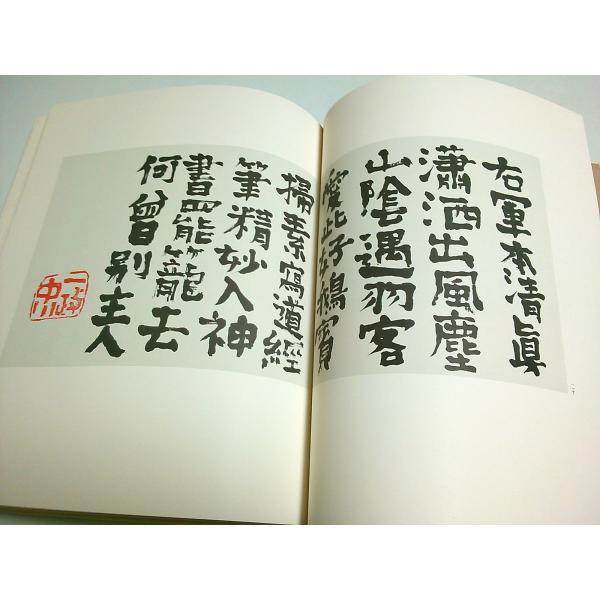 右軍本清眞
瀟洒出風塵
山陰遇羽客
愛此好鵝賓
掃素寫道經
筆精妙入神
書罷籠去
何曾別主人